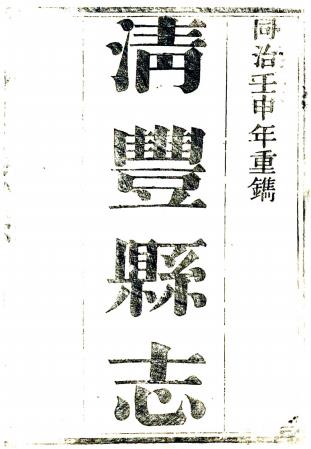 同治壬申年重鐫
淸豐縣志